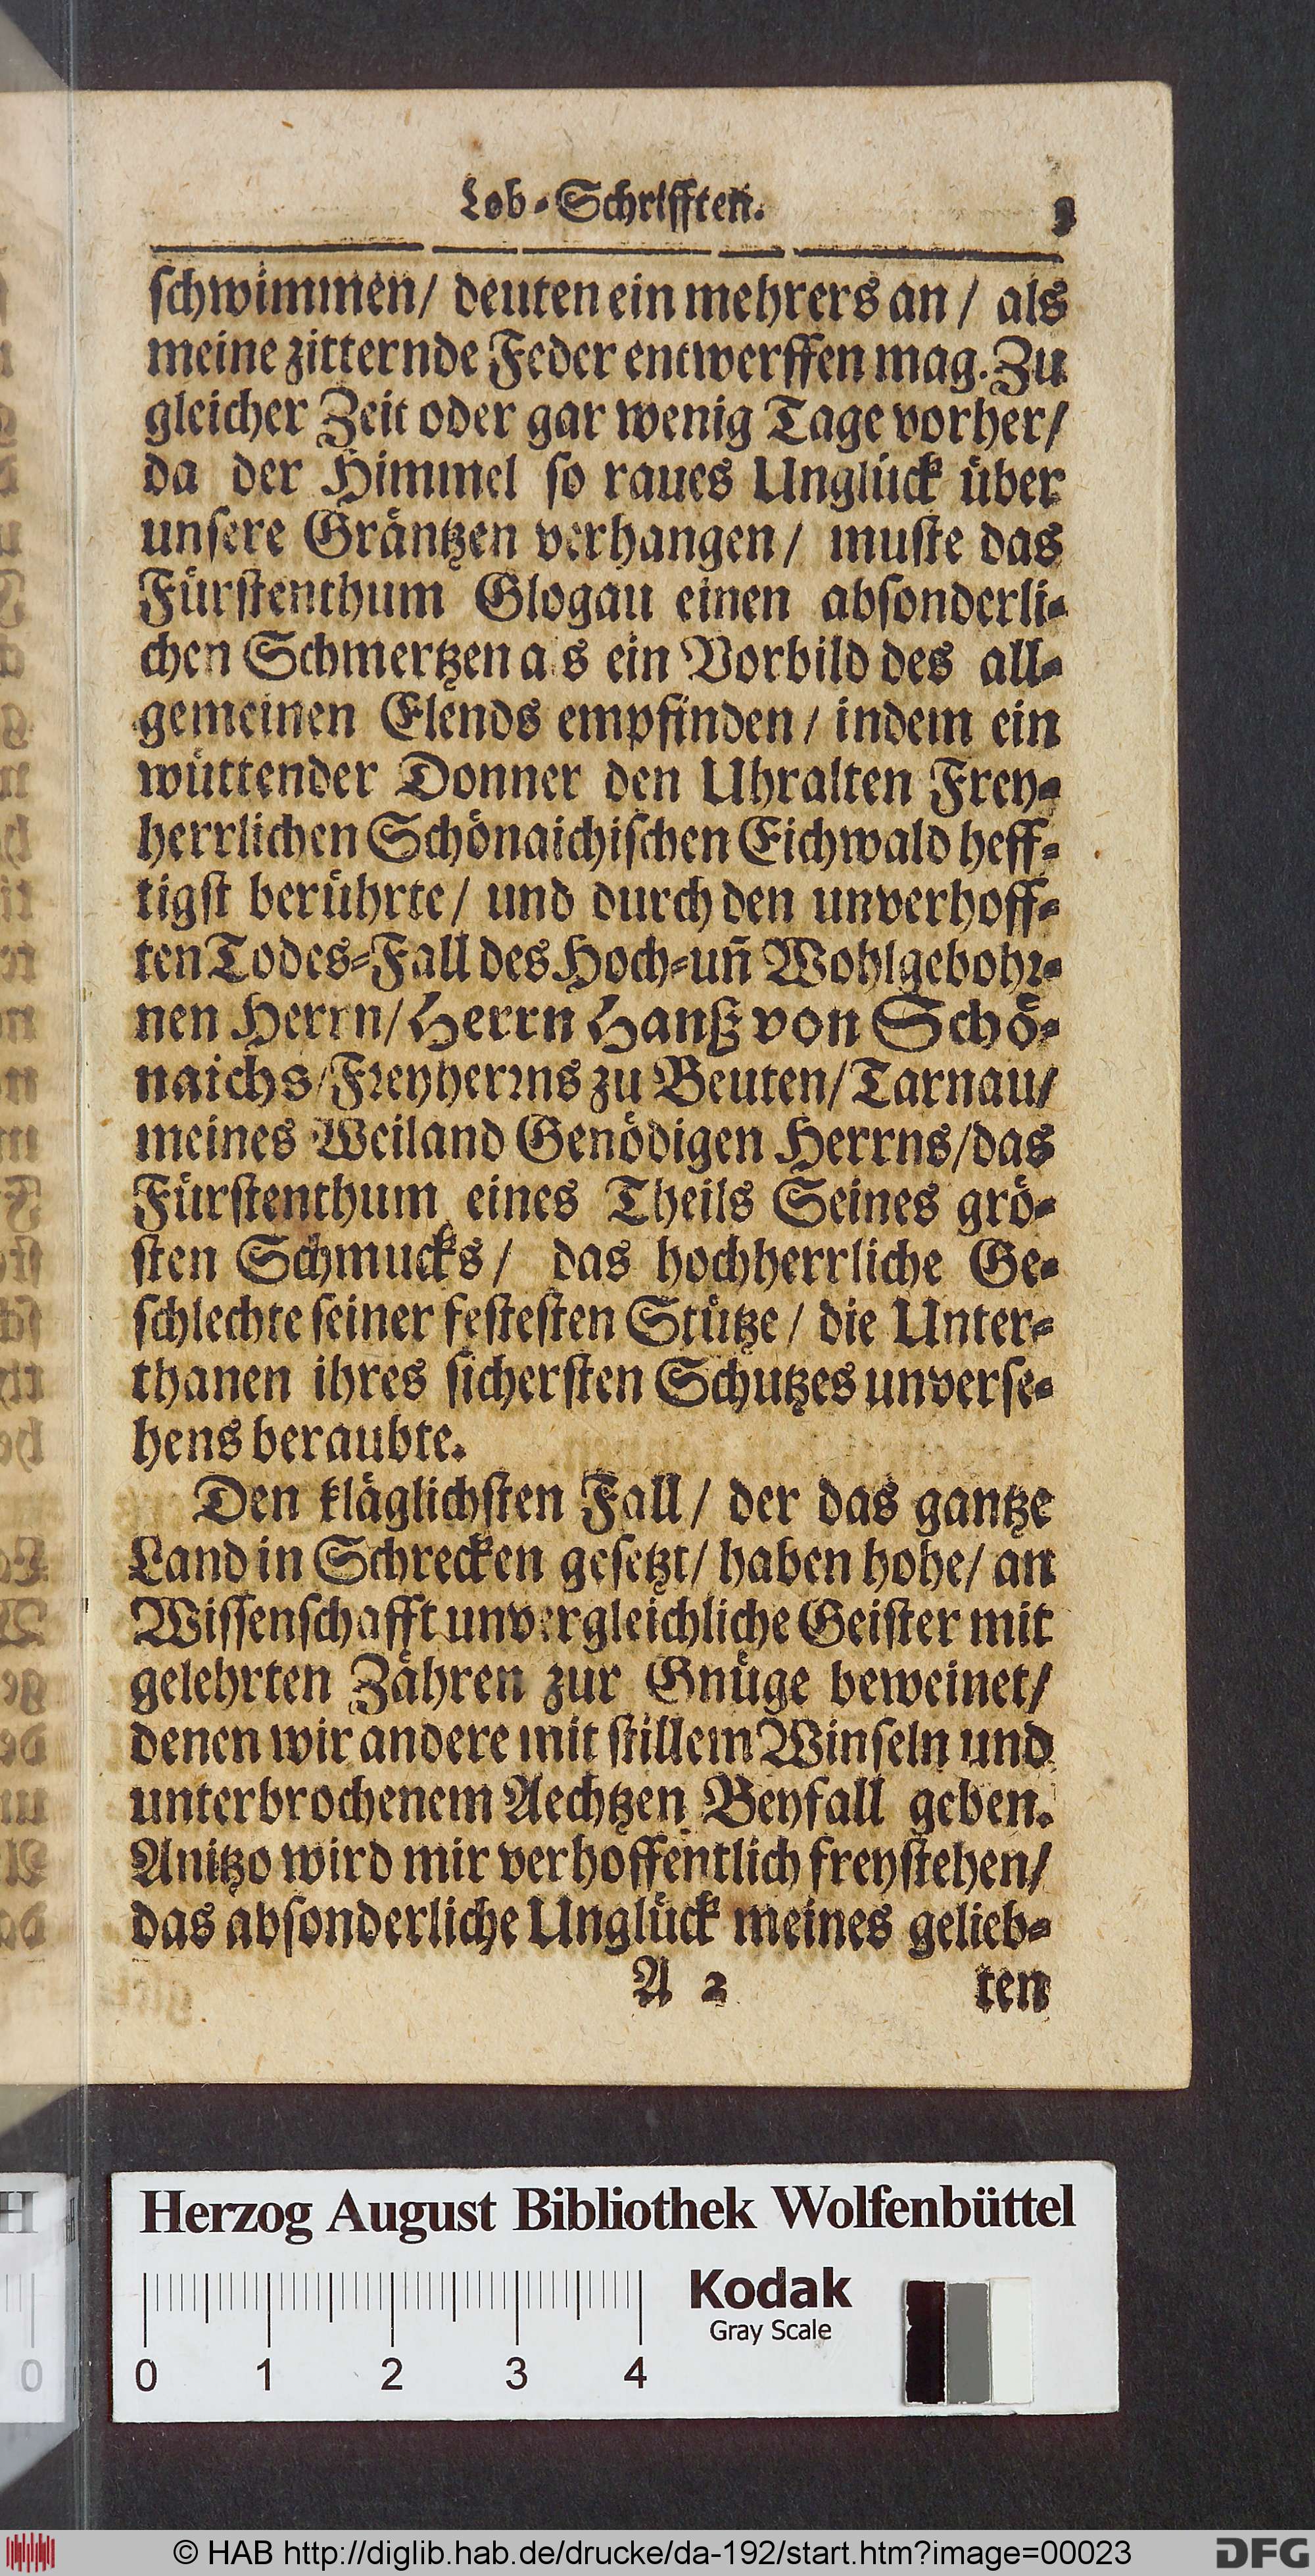 Lob-Schrifften. 3
schwimmen/ deuten ein mehrers an/ als
meine zitternde Feder entwerffen mag. Zu
gleicher Zeit oder gar wenig Tage vorher/
da der Himmel so raues Unglück über
unsere Gräntzen verhangen/ muste das
Fürstenthum Glogau einen absonderli-
chen Schmertzen als ein Vorbild des all-
gemeinen Elends empfinden/ indem ein
wüttender Donner den Uhralten Frey-
herrlichen Schönaichischen Eichwald heff-
tigst berührte/ und durch den unverhoff-
ten Todes-Fall des Hoch-uñ Wohlgebohr-
nen Herrn/ Herrn Hanß von Schö-
naichs/ Freyherrns zu Beuten/ Tarnau/
meines Weiland Genödigen Herrns/ das
Fürstenthum eines Theils Seines grö-
sten Schmucks/ das hochherrliche Ge-
schlechte seiner festesten Stütze/ die Unter-
thanen ihres sichersten Schutzes unverse-
hens beraubte.
Den kläglichsten Fall/ der das gantze
Land in Schrecken gesetzt/ haben hohe/ an
Wissenschafft unvergleichliche Geister mit
gelehrten Zähren zur Gnüge beweinet/
denen wir andere mit stillem Winseln und
unterbrochenem Aechtzen Beyfall geben.
Anitzo wird mir verhoffentlich freystehen/
das absonderliche Unglück meines gelieb-
A 2 ten
Herzog August Bibliothek Wolfenbüttel
Kodak
Gray Scale
0 1 2 3 4
© HAB http://diglib.hab.de/drucke/da-192/start.htm?image=00023
DFG